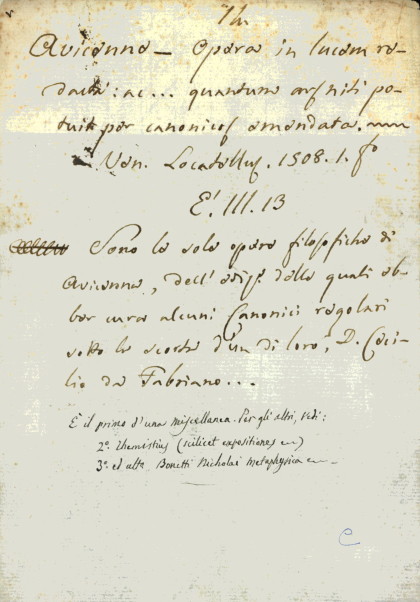 Th.
Avicenna – Opera in lucem re-
dacta: ac... quantum ars niti po-
tuit per canonicos emendata.
Ven. Locatellus. 1508. 1. fo
E'. III. 13
Sono le sole opere filosofiche di
Avicenna, dell' ediz. delle quali eb-
ber cura alcuni Canonici regolari
sotto la scorta d'un di loro, D. Ceci-
lio da Fabriano...
È il primo d'una miscellanea. Per gli altri, vedi:
2°. Themistius (scilicet expositiones
3°. ed ult°. Bonetti Nicholai metaphysica
C